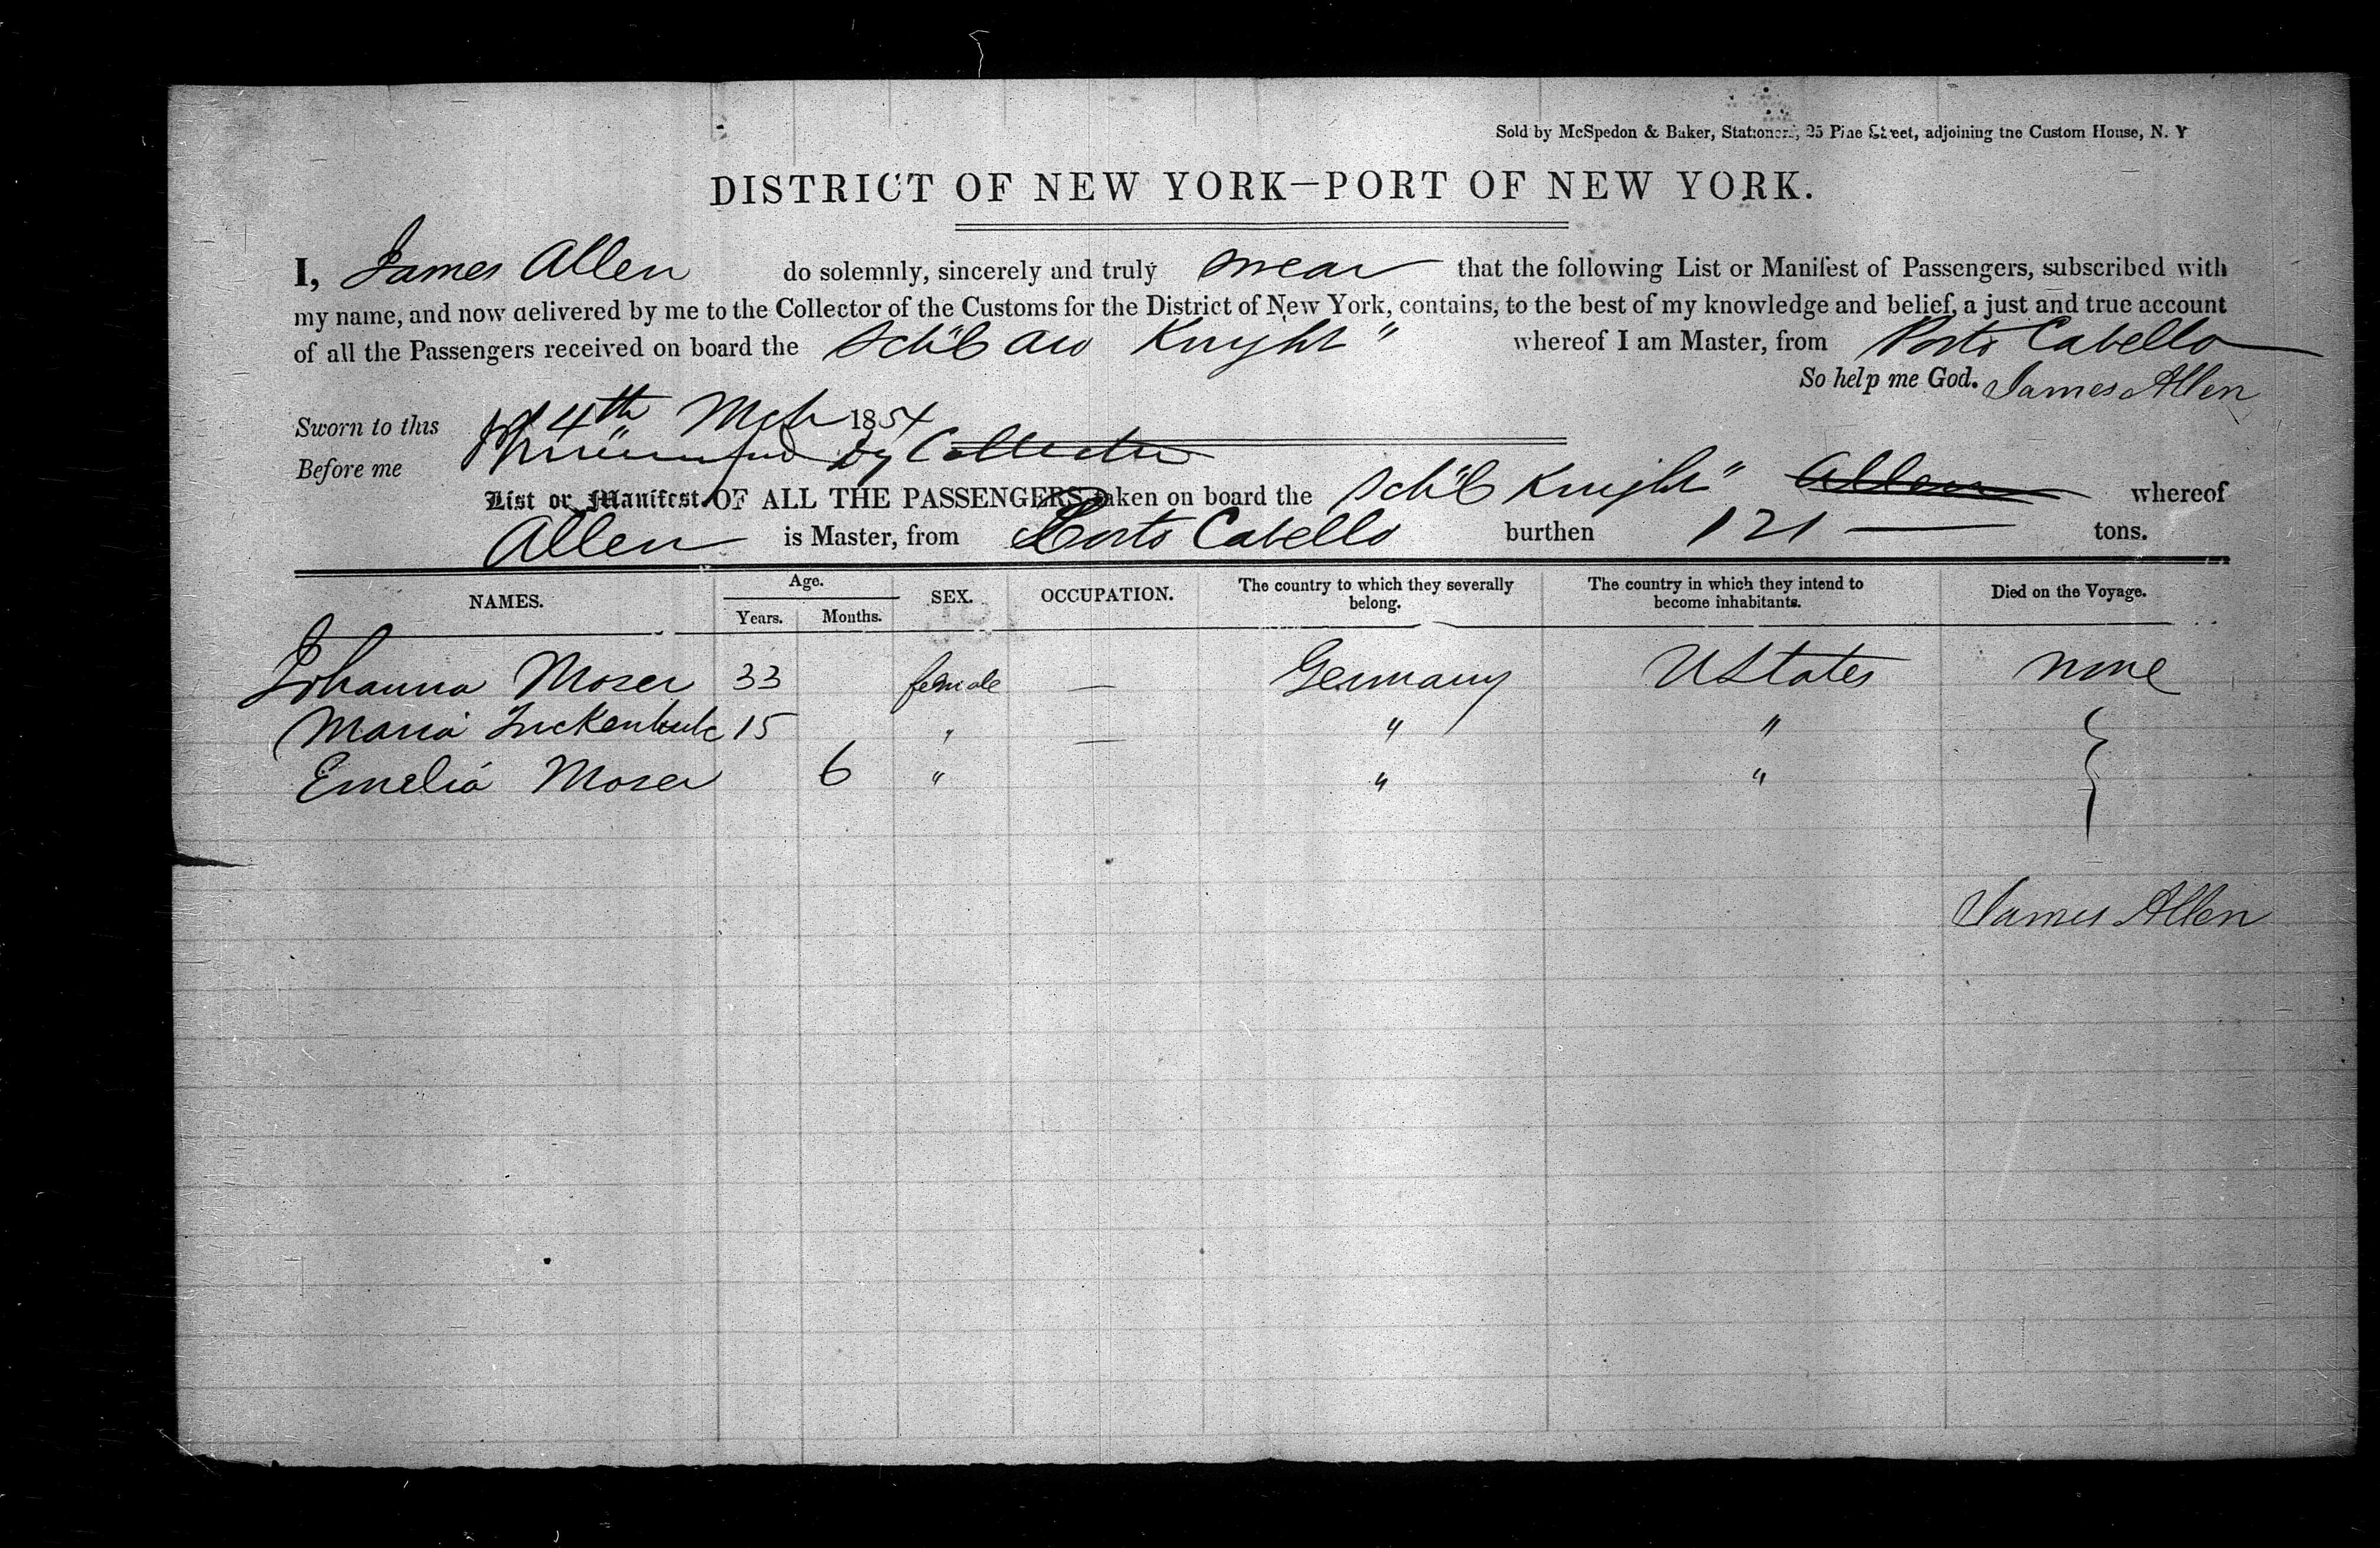 Sold by McSpedon & Baker, Stationers, 25 Pine Street, adjoining the Custom House, N. Y
DISTRICT OF NEW YORK—PORT OF NEW YORK.
I, James Allen do solemnly, sincerely and truly swear that the following List or Manifest of Passengers, subscribed with
my name, and now delivered by me to the Collector of the Customs for the District of New York, contains, to the best of my knowledge and belief, a just and true account
of all the Passengers received on board the Knight" whereof I am Master, from Porto Cabello
So help me God. James Allen
Sworn to this 4th Mch 1854
Before me Dy Collector
List or Manifest OF ALL THE PASSENGERS taken on board the Knight" Allen whereof
Allen is Master, from Porto Cabello burthen 121 — tons.
NAMES. Age. Years. Months. SEX. OCCUPATION. The country to which they severally belong. The country in which they intend to become inhabitants. Died on the Voyage.
Johanna Moser 33 female — Germany UStates none
Maria 15 " — " "
Emelia Moser 6 " " "
James Allen